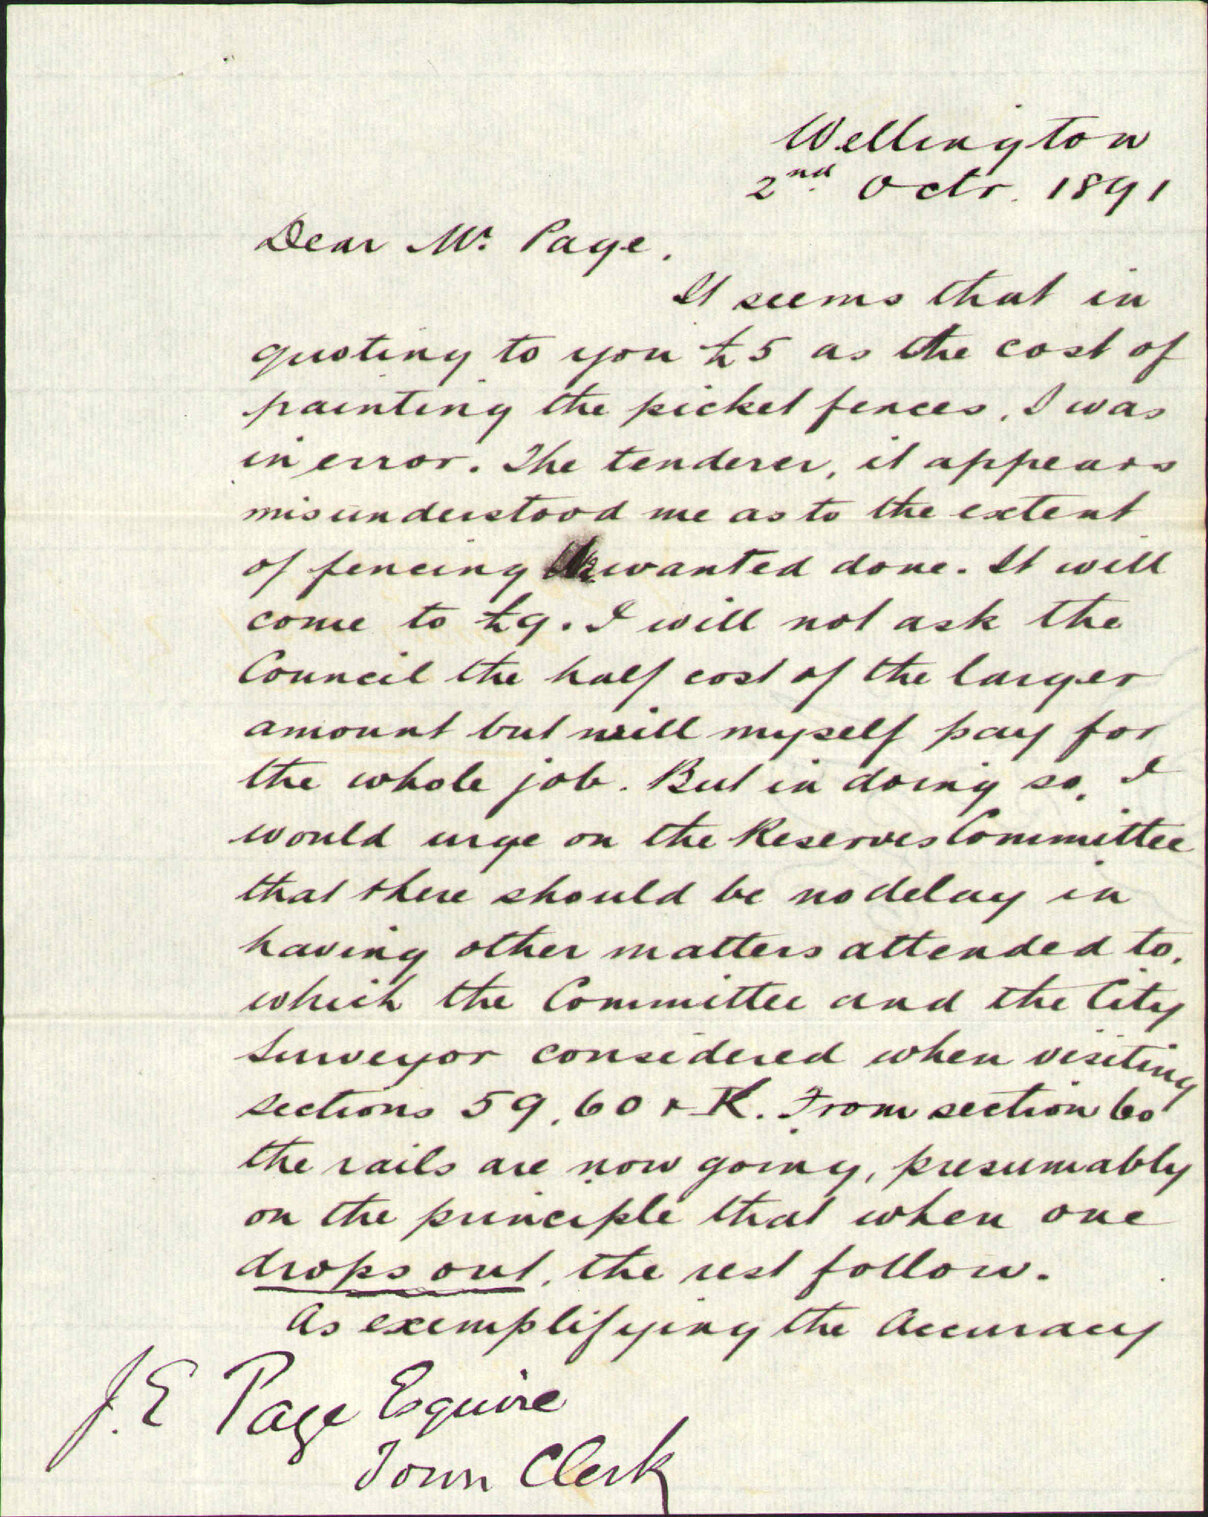 Wellington
2nd Octr. 1891
Dear Mr. Page,
It seems that in
quoting to you £5 as the cost of
painting the picket fences, I was
in error. The tenderer, it appears
misunderstood me as to the extent
of fencing wanted done. It will
come to £9. I will not ask the
Council the half cost of the larger
amount but will myself pay for
the whole job. But in doing so, I
would urge on the Reserves Committee
that there should be no delay in
having other matters attended to,
which the Committee and the City
Surveyor considered when visiting
sections 59, 60 & K. From section 60
the rails are now going, presumably
on the principle that when one
drops out, the rest follow.
As exemplifying the Accuracy
J. E Page Esquire
Town Clerk